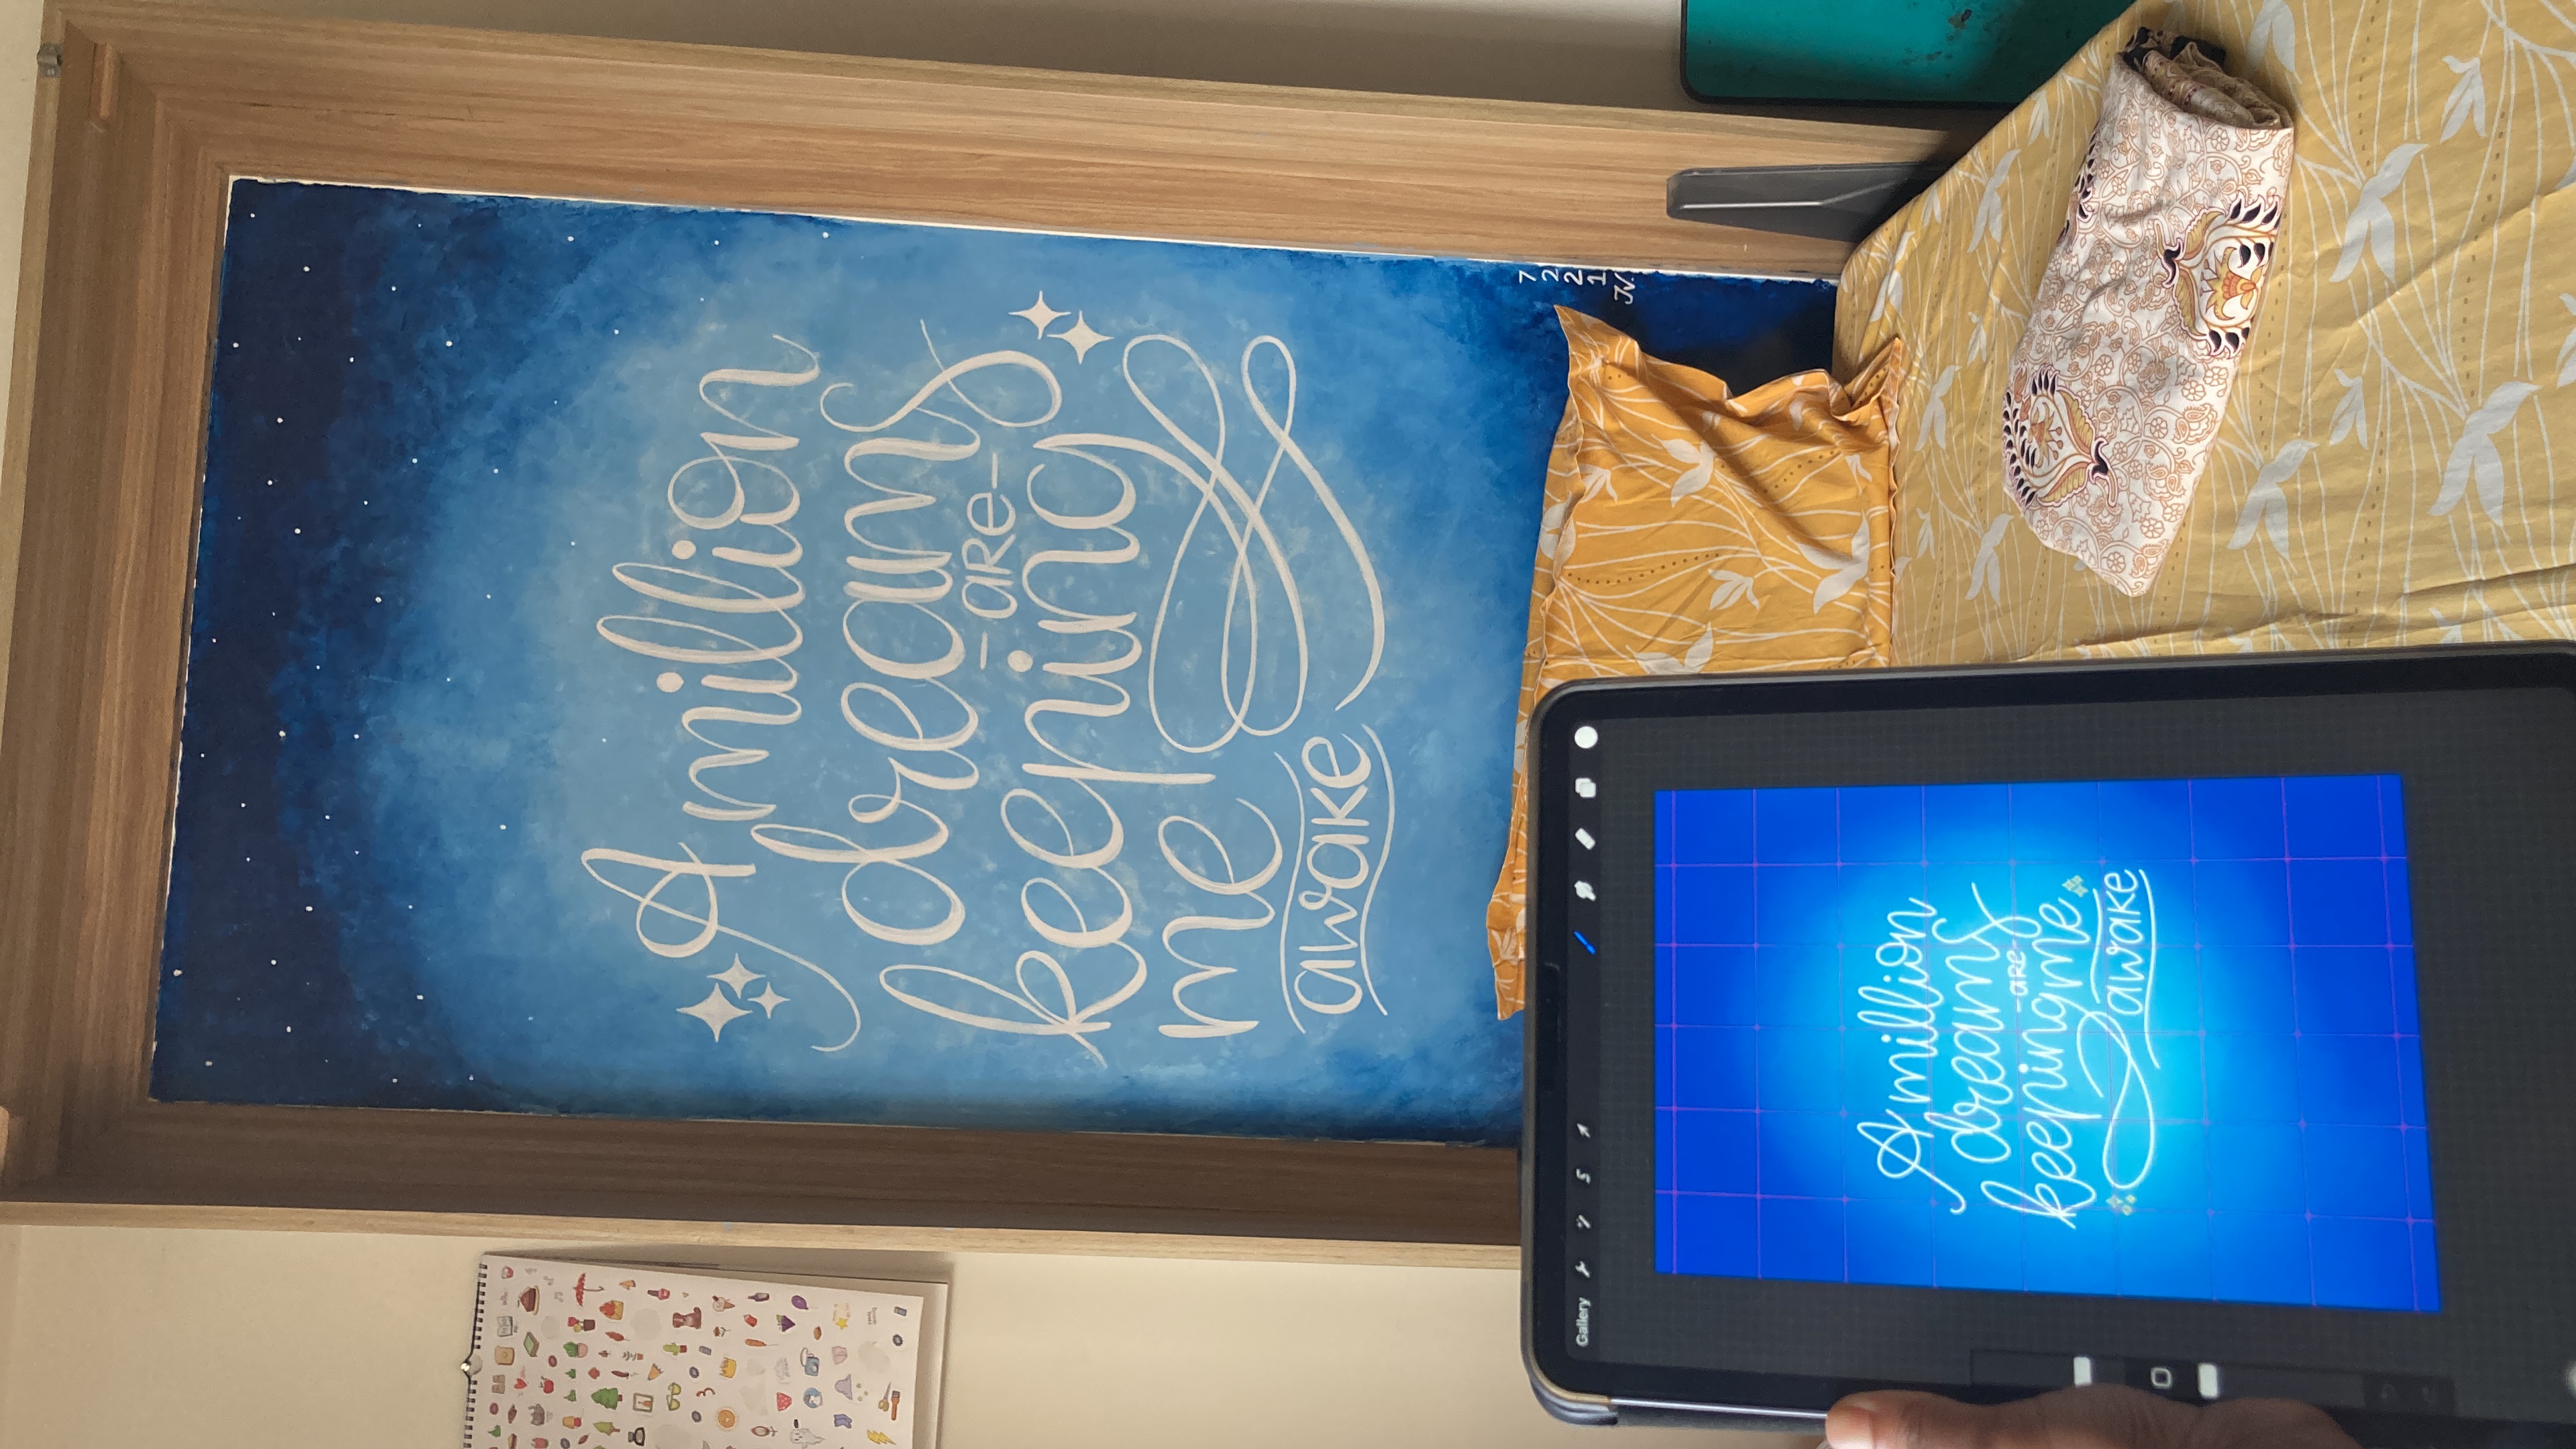 A million
dreams
-are-
keeping
me
awake
7
2
2
1
JV.
Gallery
A million
dreams
-are-
keeping me
awake